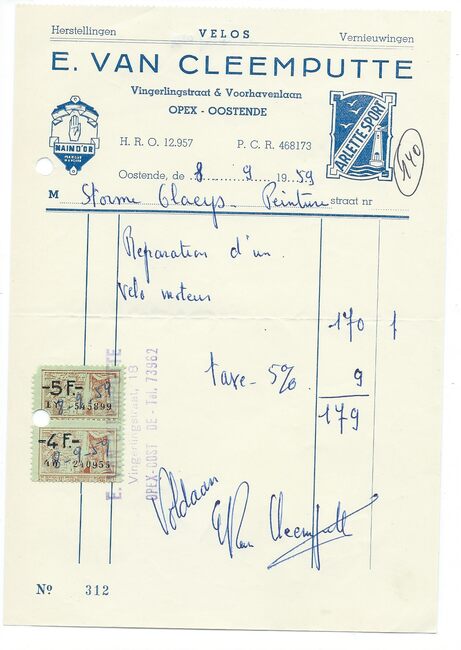 Herstellingen VELOS Vernieuwingen
E. VAN CLEEMPUTTE
Vingerlingstraat & Voorhavenlaan
OPEX - OOSTENDE
MAIN D'OR
ARLETTE SPORT
H. R. O. 12.957 P. C. R. 468173
140
Oostende, de 8 9 1959
M Storme Claeys - Peinture straat nr
Reparation d'un
velo moteur
170
taxe - 5% 9
179
-5F-
8-9-59
545899
-4F-
8-9-59
240955
E. VAN CLEEMPUTTE
Vingerlingstraat, 18
OPEX-OOST DE - Tel. 73962
Voldaan
E Van Cleemputte
No 312